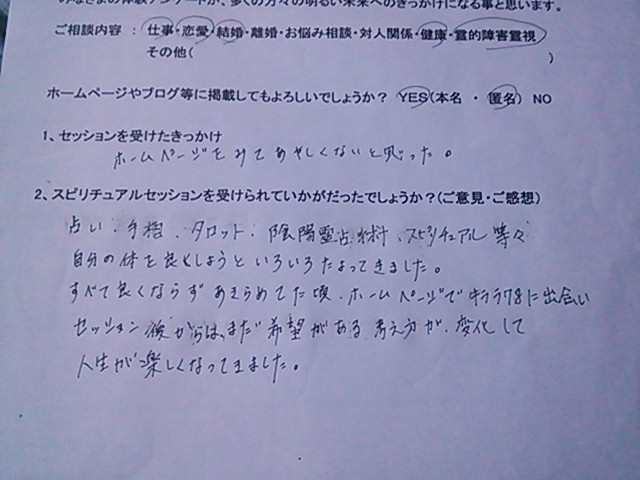 みなさまの体験アンケートが、多くの方々の明るい未来へのきっかけになる事と思います。
ご相談内容 : 仕事・恋愛・結婚・離婚・お悩み相談・対人関係・健康・霊的障害霊視
その他( )
ホームページやブログ等に掲載してもよろしいでしょうか? YES(本名 ・ 匿名) NO
1、セッションを受けたきっかけ
ホームページをみてあやしくないと思った。
2、スピリチュアルセッションを受けられていかがだったでしょうか?(ご意見・ご感想)
占い、手相、タロット、陰陽霊占術、スピリチュアル等々
自分の体を良くしようといろいろたよってきました。
すべて良くならずあきらめてた頃、ホームページでキラライフさんに出会い
セッション後からは、まだ希望がある考え方が、変化して
人生が楽しくなってきました。